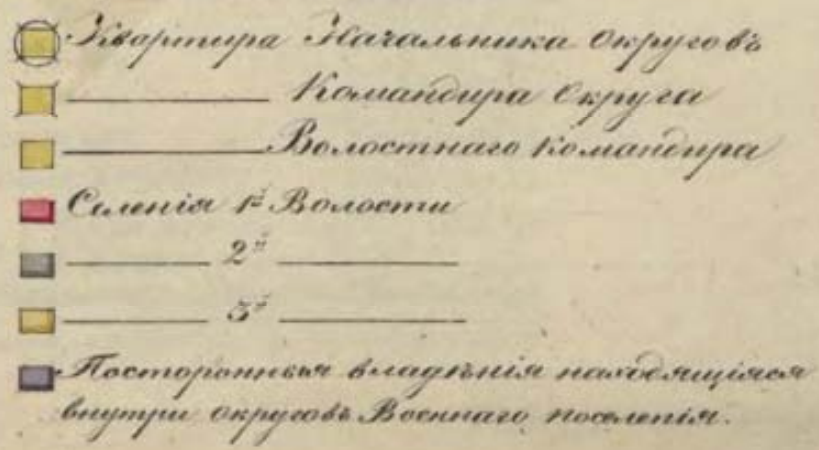 Квартира Начальника Округовъ
———— Командира Округа
———— Волостнаго Командира
Селенія 1й Волости
———— 2й ————
———— 3й ————
Постороннія владѣнія находящіяся
внутри округовъ Военнаго поселенія.